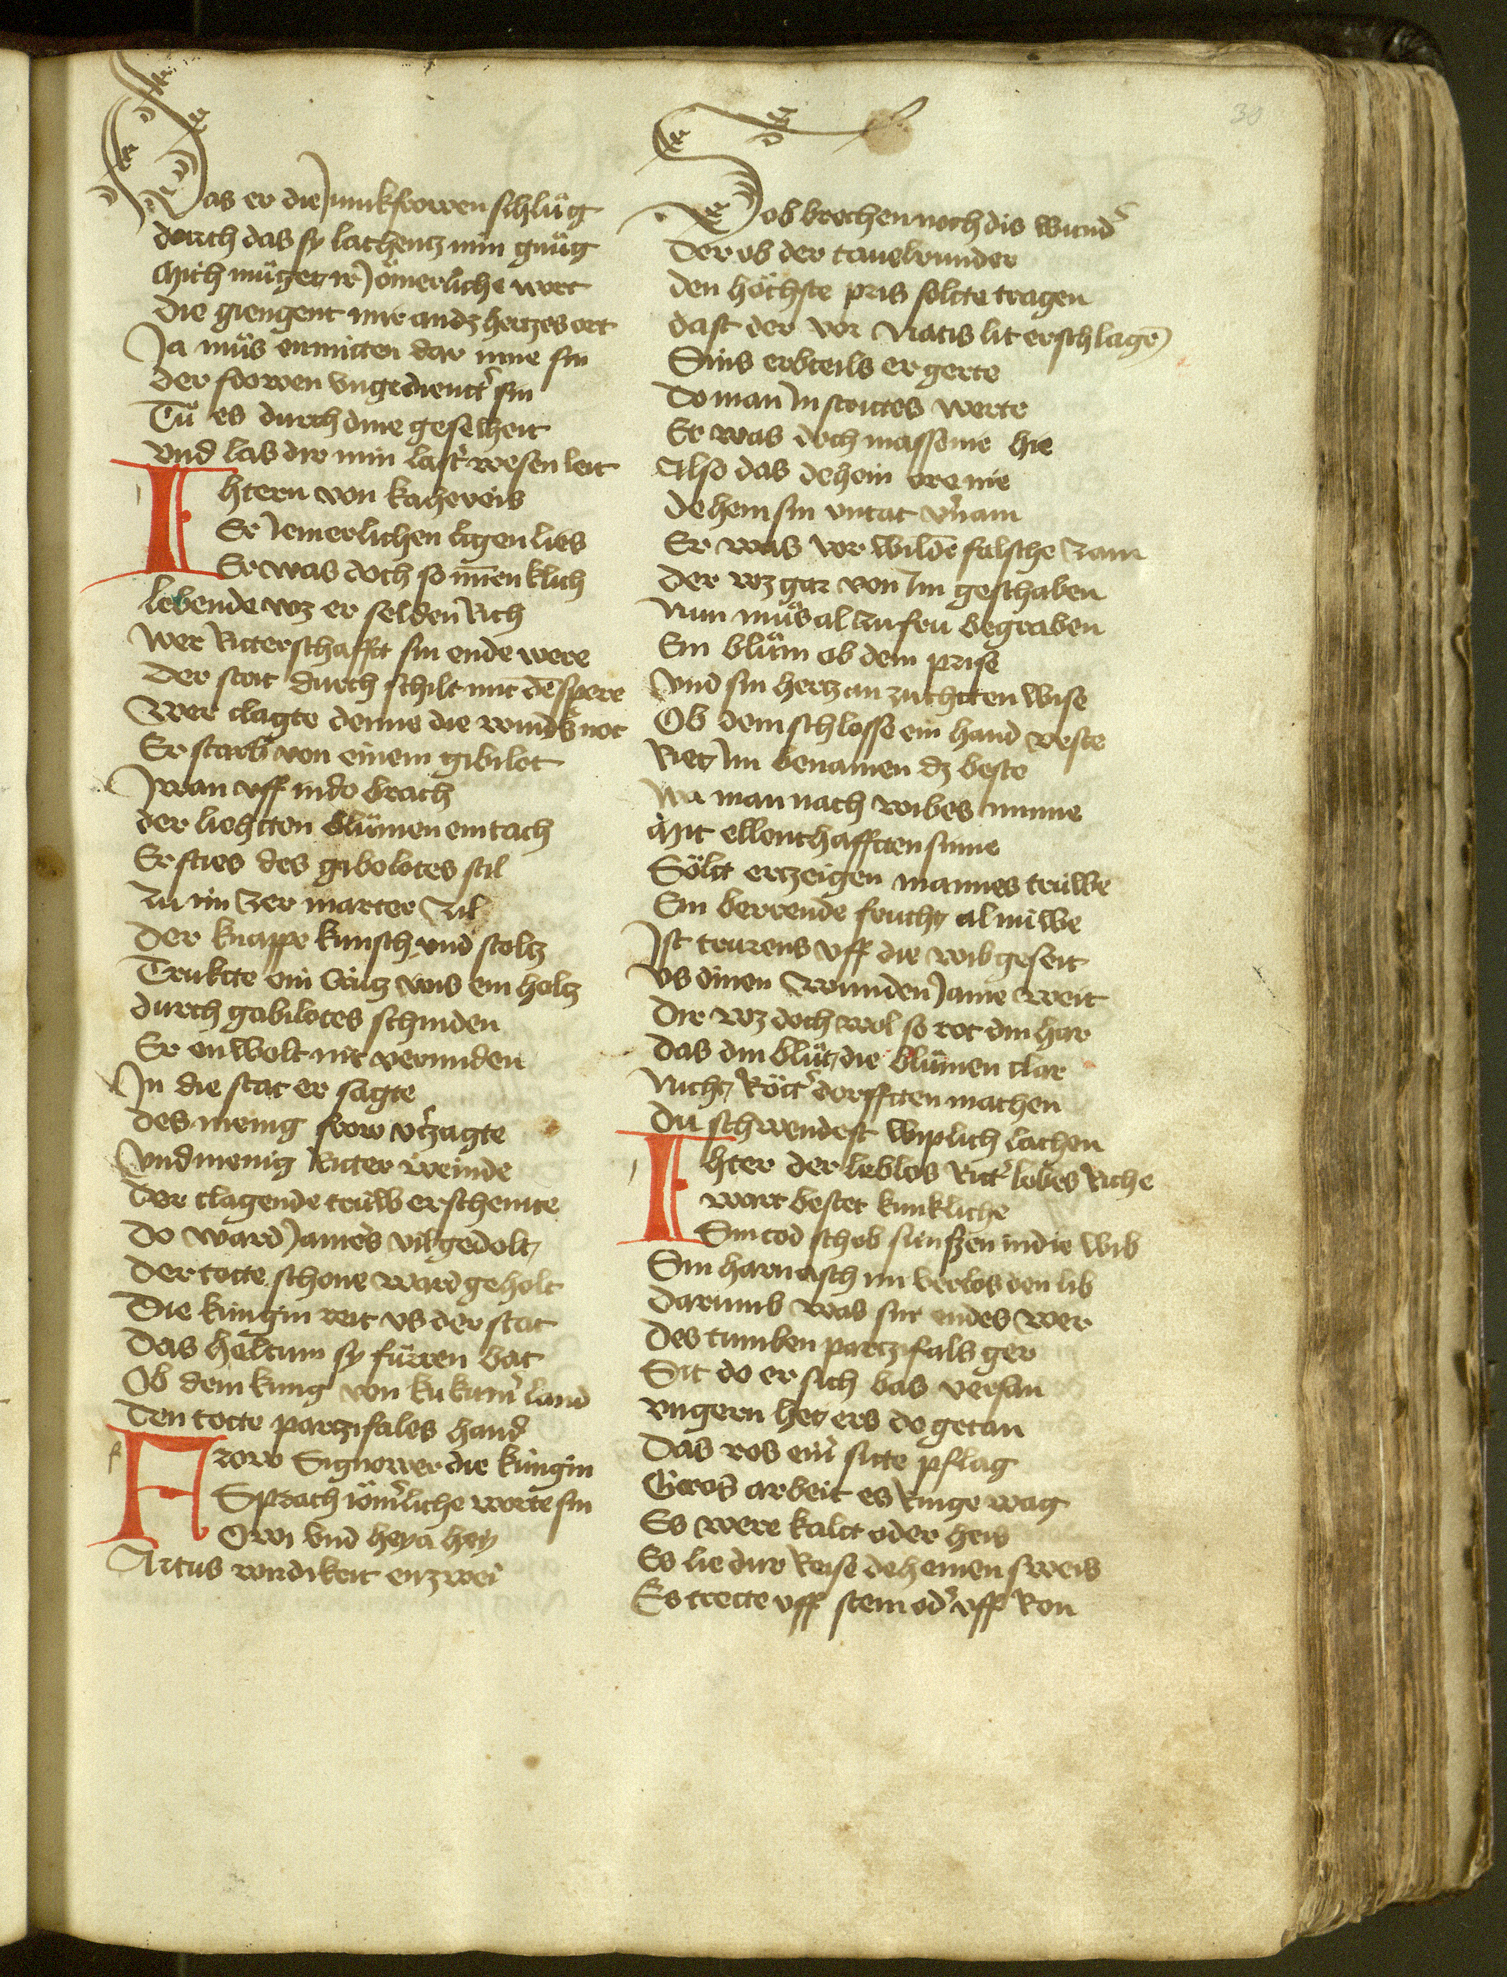 30
Das er die Junkfrowen schlůg
durch das sy lachentz min gnůg
Mich můget ir Jomerliche wort
die giengent mir andz hertzes ort
Ja můs enmitten dar inne sin
der frowen vngedientˀ sin
Tů es durch dine geselheit
vnd las dir min lastˀ wesen leit
Ihtern von kaheveis
Er Jemerlichen ligen lies
Er was doch so minenklich
lebende wz er selden Rich
wer Ritterschafft sin ende were
der stat durch schilt mit dē spere
wer clagte denne die wundˀs not
Er starb von einem gibilot
Jwan vff in do brach
der liehtten blůmen ein tach
Er sties des gabolotes stil
zu im zer marter zil
der knappe kunsch vnd stoltz
Trukte ein Crutz vns ein holtz
durch gabilotes schniden
Er en wolt nit vermiden
In die stat er sagte
des menig frow vˀzagte
vnd menig Ritter weinde
der clagende truw erscheinte
do ward Jamers vil gedolt
der totte schone ward geholt
die kungin reit vs der stat
das heltum sy fůrren bat
Ob dem kung von kukumˀ land
den totte parzifales hand
Frow Ginower die kungin
Sprach iomˀliche worte sin
Owi vnd heya hey
Artus wirdikeit enzwei
Er ob brechen noch dis wundˀ
der ob der tauelrunder
den höchste pris soltte tragen
dast der vor Natis lit erschlagē
Sins erbteils er gerte
do man Im stortes werte
Er was doch massenie hie
Also das dehein ore nie
dehein sin vntat vˀnam
Er was vor wildē falsche zam
der wz gar von Im geschaben
Nun můs al zu fru begraben
Ein blům ob dem prise
vnd sin hertz an zuchtten wise
Ob dem schlosse ein hand veste
Riet Im benamen dz beste
wa man nach wibes minne
Mit ellenthafftten sinne
Söltt erzeigen mannes trůwe
Ein berrende frucht al nuwe
Ist trurens vff die wib geseit
vs dinen wunnden Jame weit
dir wz doch wol so rot din har
das din blůt die blůmen clar
Nicht Röttˀ dorfften machen
du schwendest wiplich lachen
Ihter der leblos Rittˀ lobes Riche
wart bestet kunkliche
Sin tod schob sunfzen in die wib
Sin harnasch im verlos den lib
darumb was sin endes wer
des tumben partzifals ger
Sit do er sich bas versan
vngern het ers do getan
das ros einˀ sitte pflag
Gros arbeit es Ringe wag
Es were kaltt oder heis
Es lie dur Reise deheinen sweis
Es trette vff stein odˀ vff Ron